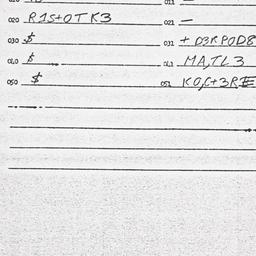 020 R1S+OTK3 021 —
030 $ 031 + D3RPOD8
040 $ 041 MA,TL3
050 $ 051 KO,C+3RE